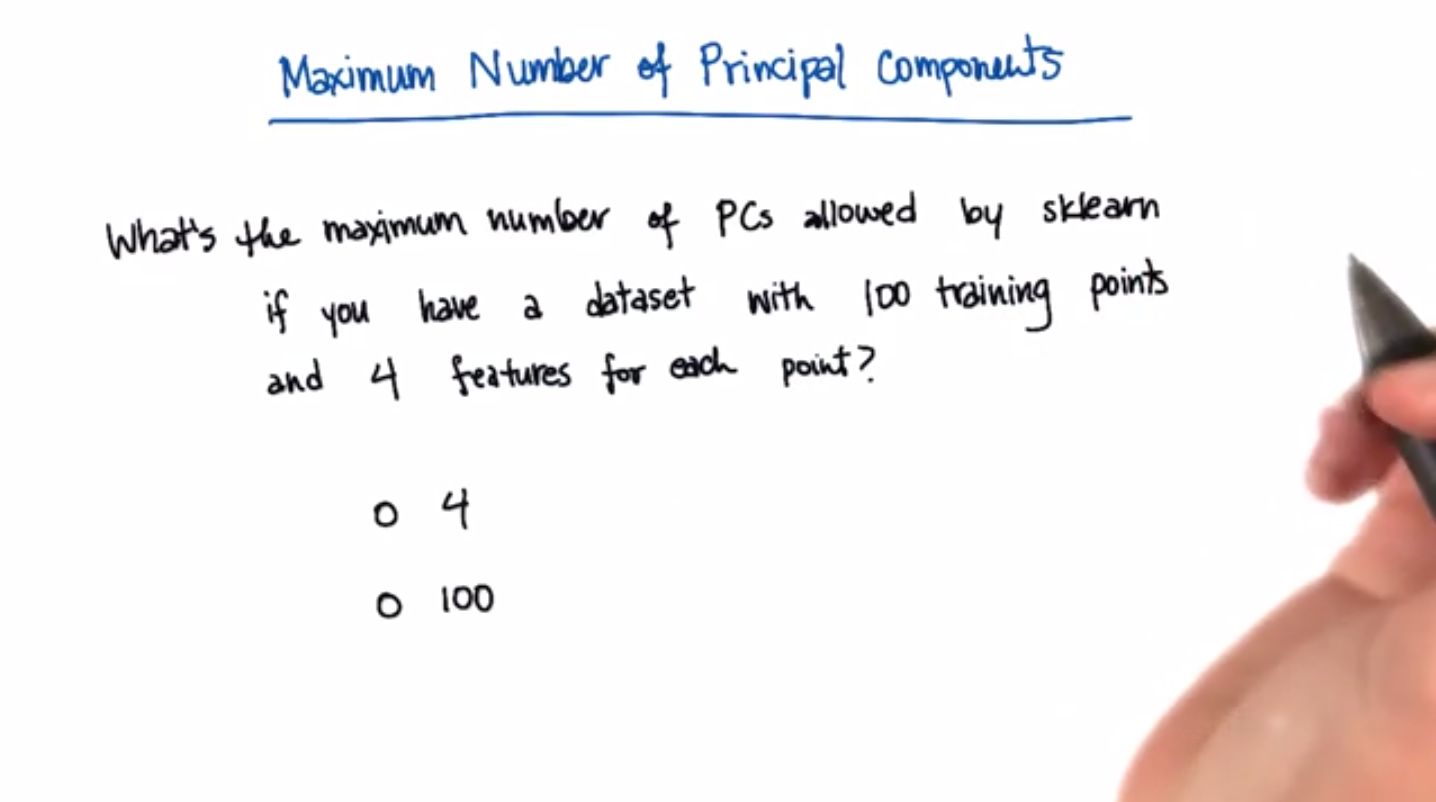 Maximum Number of Principal Components
What's the maximum number of PCs allowed by sklearn
if you have a dataset with 100 training points
and 4 features for each point?
O 4
O 100